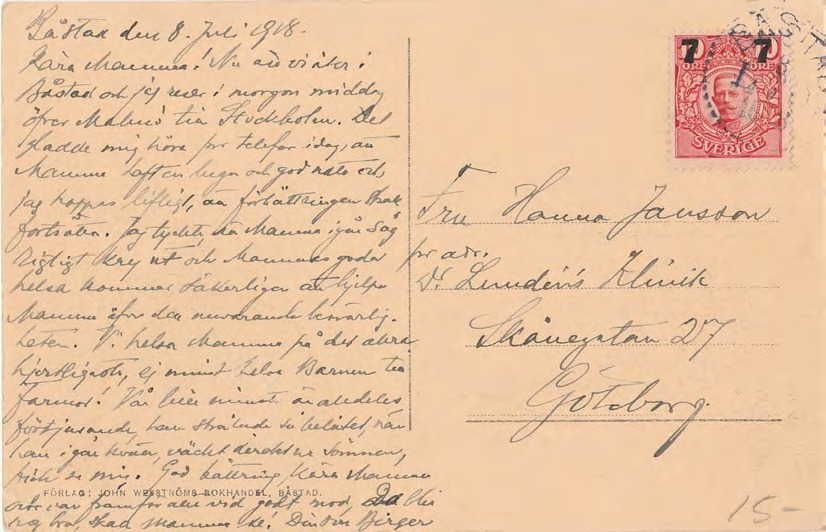 Båstad den 8. Juli 1918.
Kära Mamma! Nu äro vi åter i
Båstad och jag reser i morgon middag
öfver Malmö till Stockholm. Det
gladde mig höra pr telefon idag, att
Mamma haft en lugn och god natt och
jag hoppas lifligt, att förbättringen skall
fortsätta. Jag tyckte att Mamma igår såg
riktigt kry ut och Mammas goda
helsa kommer säkerligen att hjelpa
Mamma öfver den nuvarande besvärlig-
heten. Vi helsa Mamma på det allra
hjertligaste, ej minst helsa Barnen till
Farmor! Vår lille minsta är alldeles
förtjusande, han strålade så belåtet, när
han igår väckt direkt ur sömnen,
fick se mig. God bättring, Kära Mamma
och var framförallt vid godt mod, Det blir
nog bra, skall Mamma se! Din Son Birger
FÖRLAG: JOHN WESSTRÖMS BOKHANDEL, BÅSTAD.
7 7
ÖRE ÖRE
SVERIGE
BÅSTAD
Fru Hanna Jansson
pr adr.
Dr Lundéns Klinik
Skånegatan 27
Göteborg.
15-